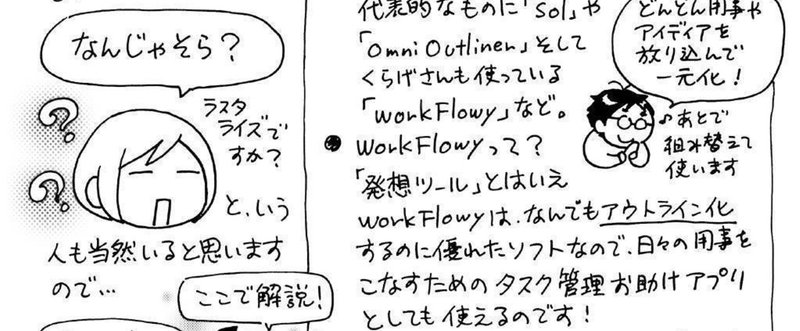 なんじゃそら？
ラスタ
ライズで
すか？
と、いう
人も当然いると思います
ので…
ここで解説！
代表的なものに「Sol」や
「Omni Outliner」そして
くらげさんも使っている
「WorkFlowy」など。
WorkFlowyって？
「発想ツール」とはいえ
WorkFlowyは、なんでもアウトライン化
するのに優れたソフトなので、日々の用事を
こなすためのタスク管理お助けアプリ
としても使えるのです！
どんどん用事や
アイディアを
放り込んで
一元化！
♪あとで
組み替えて
使います